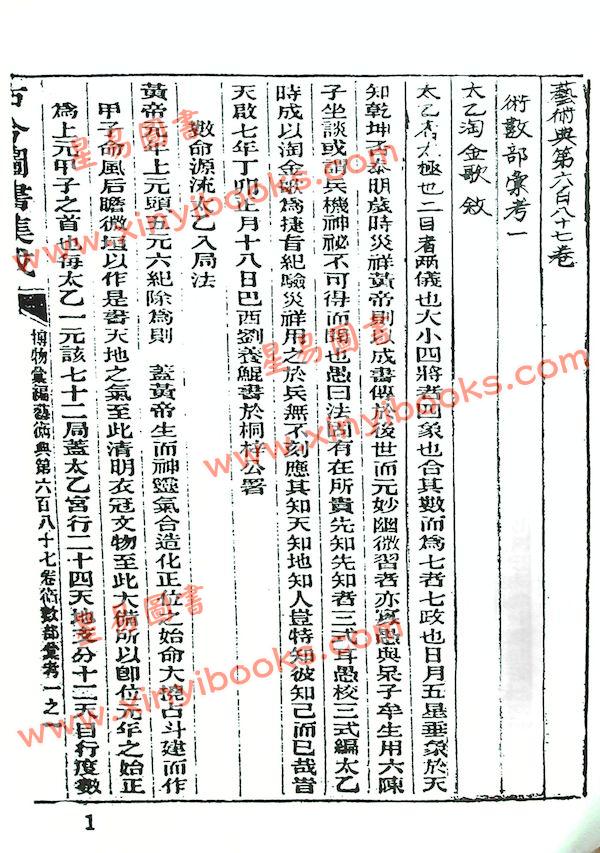 藝術典第六百八十七卷
術數部彙考一
太乙淘金歌敘
太乙者太極也二目者兩儀也大小四將者四象也合其數而為七者七政也日月五星垂象於天
知乾坤否泰明歲時災祥黃帝則以成書傳於後世而元妙幽微習者亦寡愚與呆子牟生用六陳
子坐談或謂兵機神祕不可得而聞也愚曰法固有在所貴先知先知者三式耳愚校三式編太乙
時成以淘金歌為捷旨紀驗災祥用之於兵無不刻應其知天知地知人豈特知彼知己而已哉旹
天啟七年丁卯正月十八日巴西劉養鯤書於桐梓公署
數命源流太乙入局法
黃帝元年上元頭五元六紀除為則 蓋黃帝生而神靈氣合造化正位之始命大撓占斗建而作
甲子命風后瞻微垣以作是書天地之氣至此清明衣冠文物至此大備所以即位元年之始正
為上元甲子之首也每太乙一元該七十二局蓋太乙宮行二十四天地支分十二天目行度數
古今圖書集成
博物彙編藝術典第六百八十七卷術數部彙考一之一
1
星易圖書
www.xinyibooks.com
星易圖書
www.xinyibooks.com
星易圖書
www.xinyibooks.com